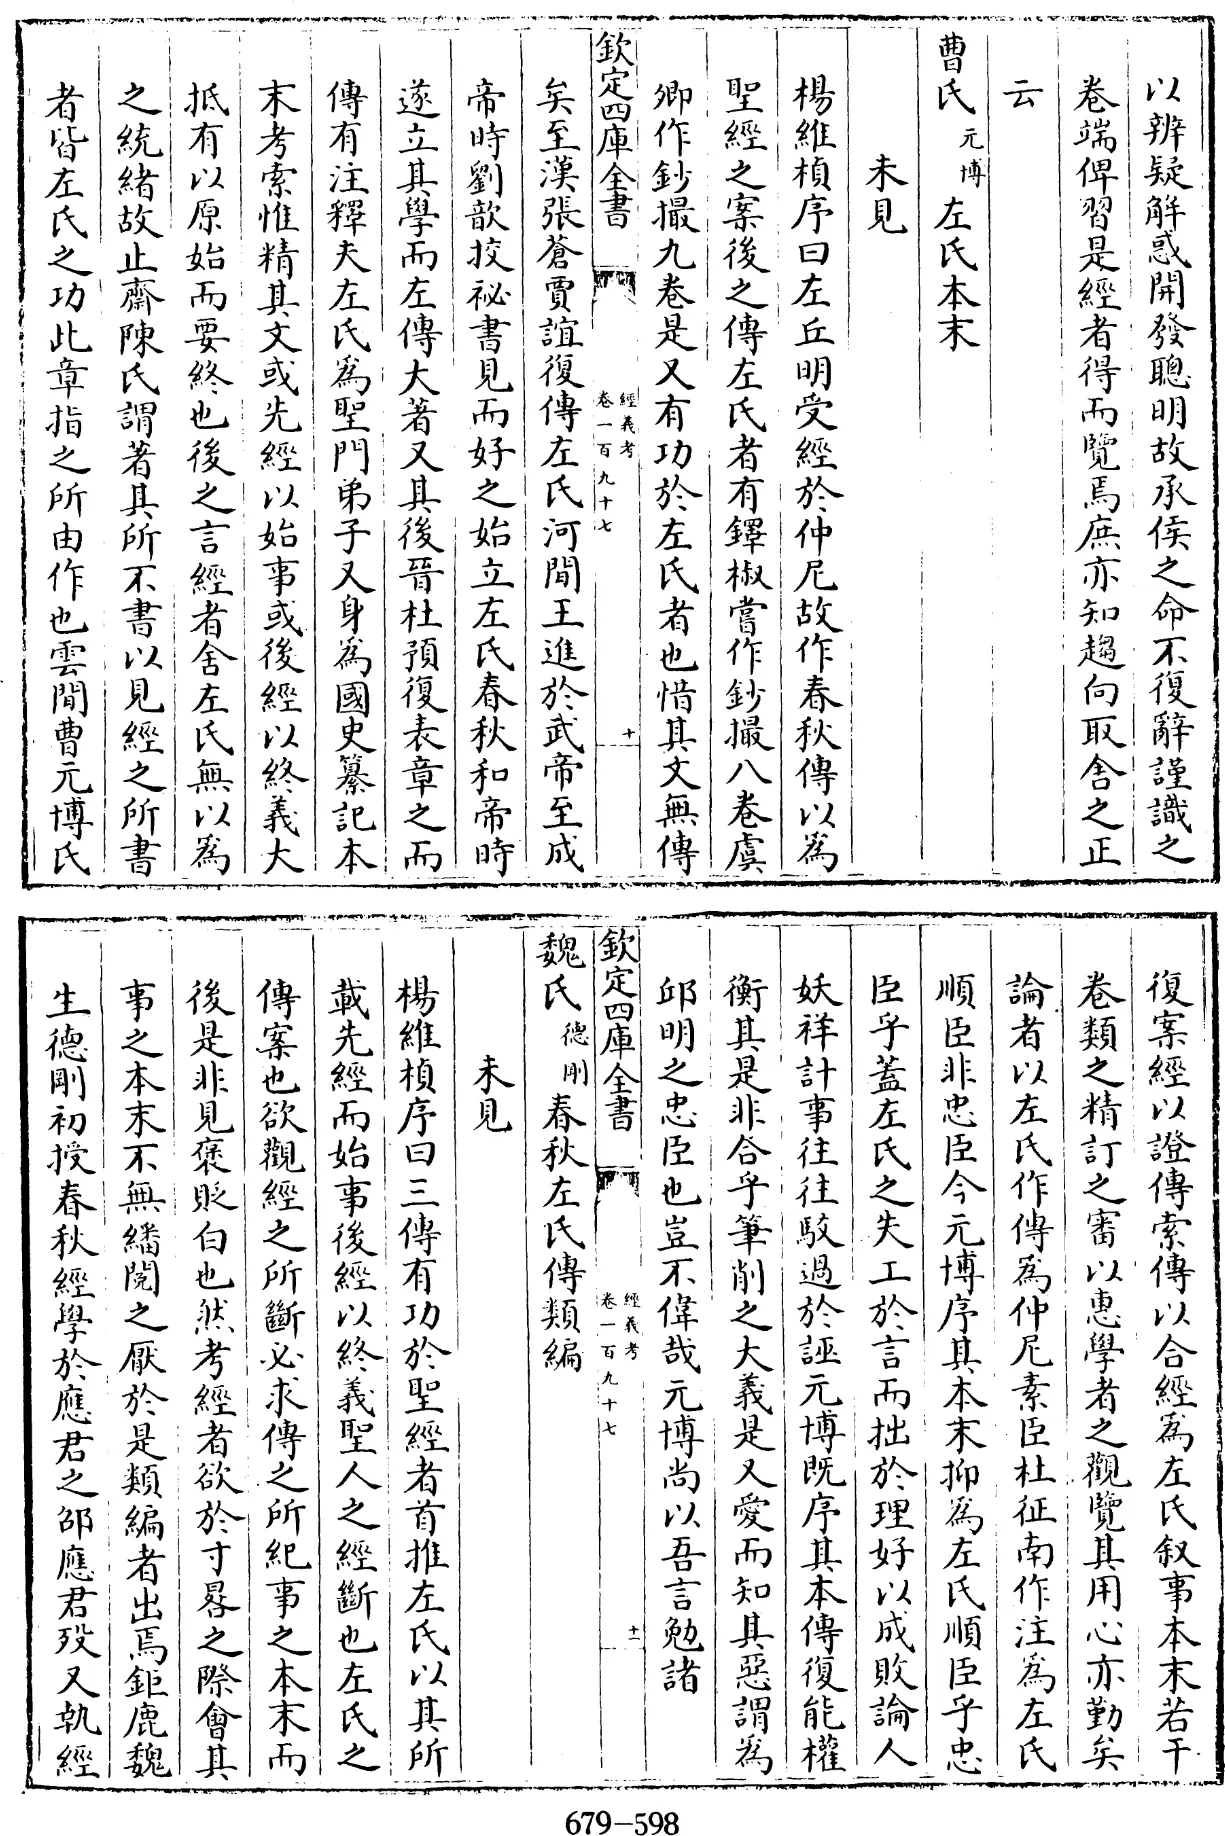 以辨疑解惑開發聰明故承侯之命不復辭謹識之
卷端俾習是經者得而覽焉庶亦知趨向取舍之正
云
曹氏元博左氏本末
未見
楊維楨序曰左丘明受經於仲尼故作春秋傳以為
聖經之案後之傳左氏者有鐸椒嘗作鈔撮八卷虞
卿作鈔撮九卷是又有功於左氏者也惜其文無傳
欽定四庫全書
經義考
卷一百九十七
十
矣至漢張蒼賈誼復傳左氏河間王進於武帝至成
帝時劉歆挍祕書見而好之始立左氏春秋和帝時
遂立其學而左傳大著又其後晉杜預復表章之而
傳有注釋夫左氏為聖門弟子又身為國史纂記本
末考索惟精其文或先經以始事或後經以終義大
抵有以原始而要終也後之言經者舍左氏無以為
之統緒故止齋陳氏謂著其所不書以見經之所書
者皆左氏之功此章指之所由作也雲間曹元博氏
復案經以證傳索傳以合經為左氏叙事本末若干
卷類之精訂之審以惠學者之觀覽其用心亦勤矣
論者以左氏作傳為仲尼素臣杜征南作注為左氏
順臣非忠臣今元博序其本末抑為左氏順臣乎忠
臣乎蓋左氏之失工於言而拙於理好以成敗論人
妖祥計事往往駮過於誣元博既序其本傳復能權
衡其是非合乎筆削之大義是又愛而知其惡謂為
邱明之忠臣也豈不偉哉元博尚以吾言勉諸
欽定四庫全書
經義考
卷一百九十七
十一
魏氏德剛春秋左氏傳類編
未見
楊維楨序曰三傳有功於聖經者首推左氏以其所
載先經而始事後經以終義聖人之經斷也左氏之
傳案也欲觀經之所斷必求傳之所紀事之本末而
後是非見褒貶白也然考經者欲於寸晷之際會其
事之本末不無繙閱之厭於是類編者出焉鉅鹿魏
生德剛初授春秋經學於應君之邵應君歿又執經
679-598